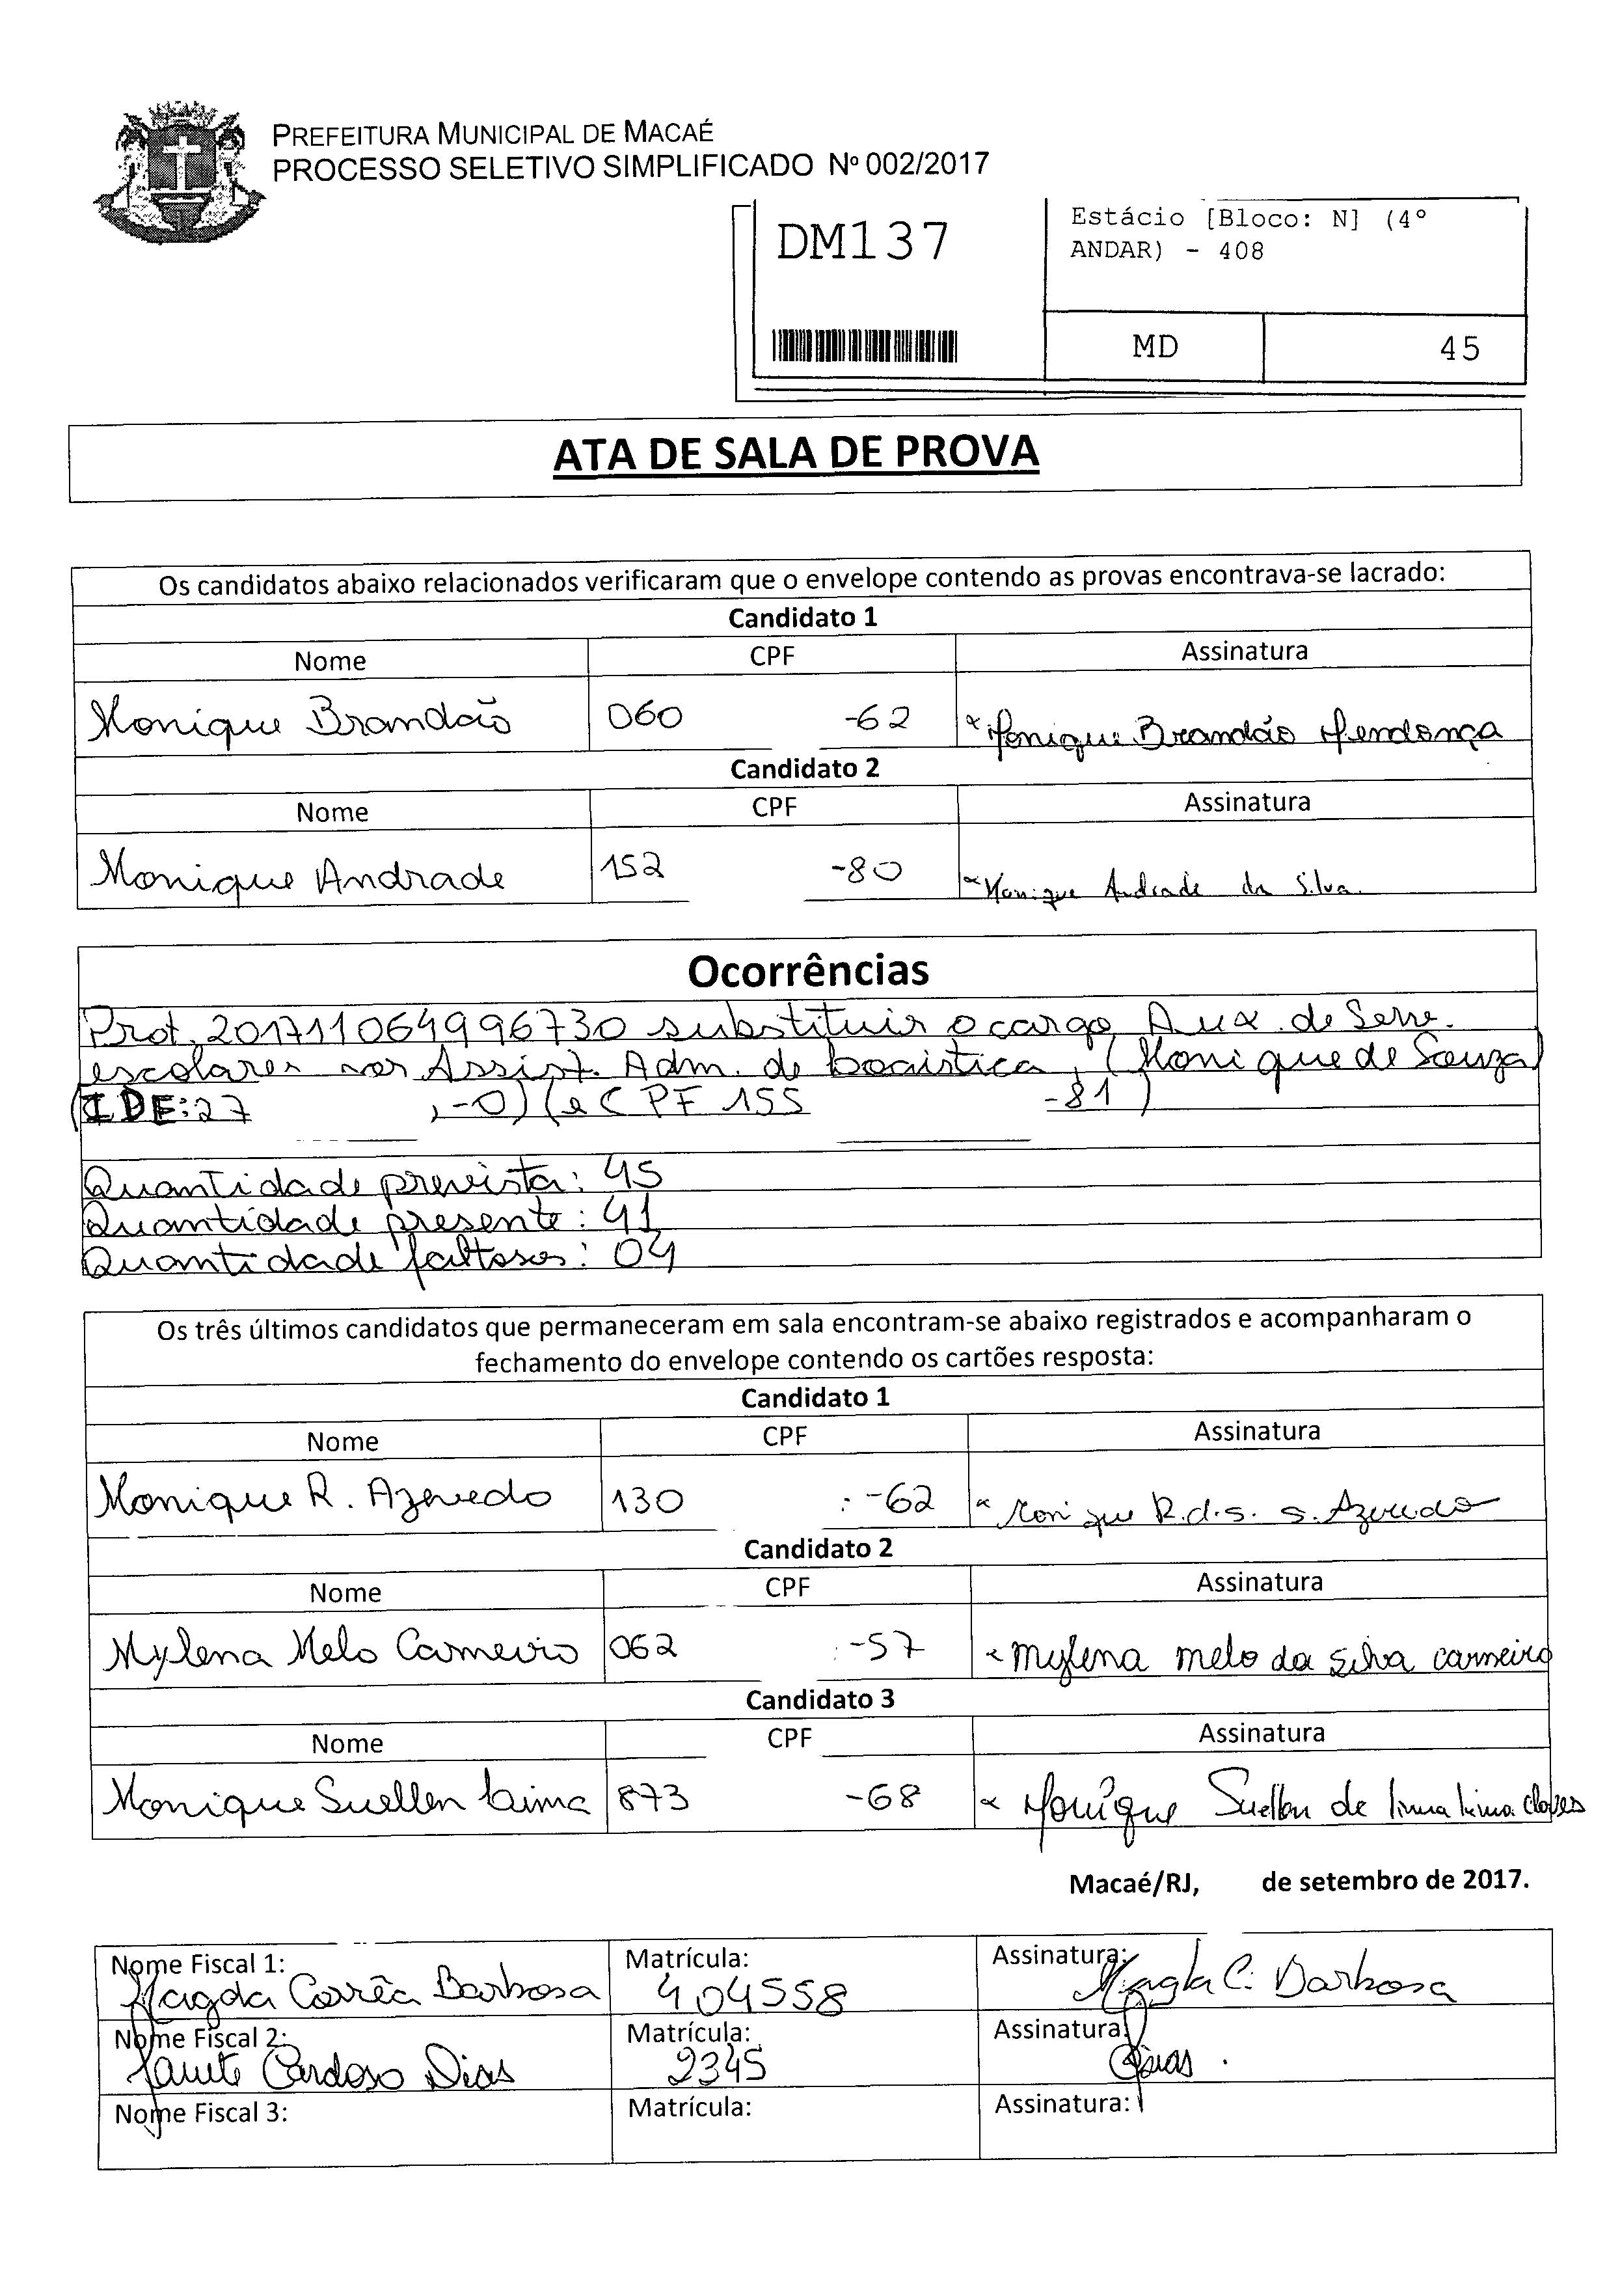 PREFEITURA MUNICIPAL DE MACAÉ
PROCESSO SELETIVO SIMPLIFICADO Nº 002/2017
DM137
Estácio [Bloco: N] (4º
ANDAR) - 408
MD 45
ATA DE SALA DE PROVA
Os candidatos abaixo relacionados verificaram que o envelope contendo as provas encontrava-se lacrado:
Candidato 1
Nome CPF Assinatura
Monique Brandão 060 -62 x Monique Brandão Mendonça
Candidato 2
Nome CPF Assinatura
Monique Andrade 152 -80 x Monique Andrade da Silva.
Ocorrências
Prot. 201711064996730 substituir o cargo Aux. de Serv.
escolares por Assist. Adm. de Logística, (Monique de Souza)
(IDE:27 ,-0) (e CPF 155 -81)
Quantidade prevista: 45
Quantidade presente: 41
Quantidade faltosos: 04
Os três últimos candidatos que permaneceram em sala encontram-se abaixo registrados e acompanharam o
fechamento do envelope contendo os cartões resposta:
Candidato 1
Nome CPF Assinatura
Monique R. Azevedo 130 -62 x Monique R.d.s. s. Azevedo
Candidato 2
Nome CPF Assinatura
Mylena Melo Carneiro 062 -57 x Mylena melo da Silva carneiro
Candidato 3
Nome CPF Assinatura
Monique Suellen Lima 873 -68 x Monique Suellen de Lima
Macaé/RJ, de setembro de 2017.
Nome Fiscal 1: Matrícula: Assinatura:
Magda Corrêa Barbosa 404558 Magda C. Barbosa
Nome Fiscal 2: Matrícula: Assinatura:
Cardoso Dias 2345 Dias.
Nome Fiscal 3: Matrícula: Assinatura: